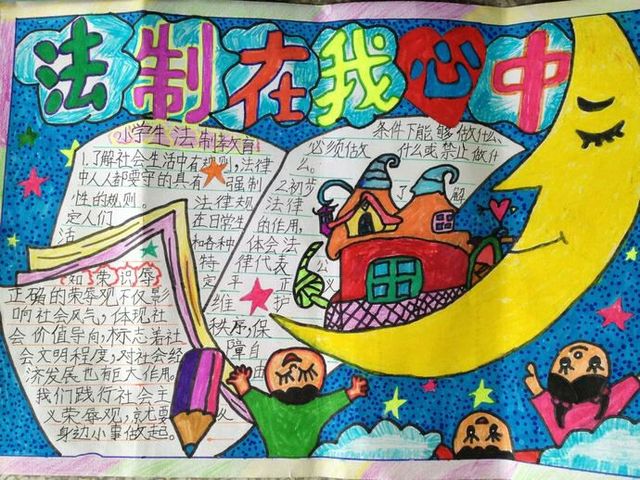 法制在我心中
小学生法制教育
1.了解社会生活中有规则,法律
中人人都要守的具有强制
性的规则。法律规
定人们在日常生
活和各种
条件下能够做什么、
必须做什么或禁止做什
么。
2.初步了解
法律的作用,
体会法
律代表
平正义
维护
秩序,保
障自
由
知荣识辱
正确的荣辱观不仅影
响社会风气,体现社
会价值导向,标志着社
会文明程度,对社会经
济发展也有巨大作用。
我们践行社会主
义荣辱观,就要从
身边小事做起。